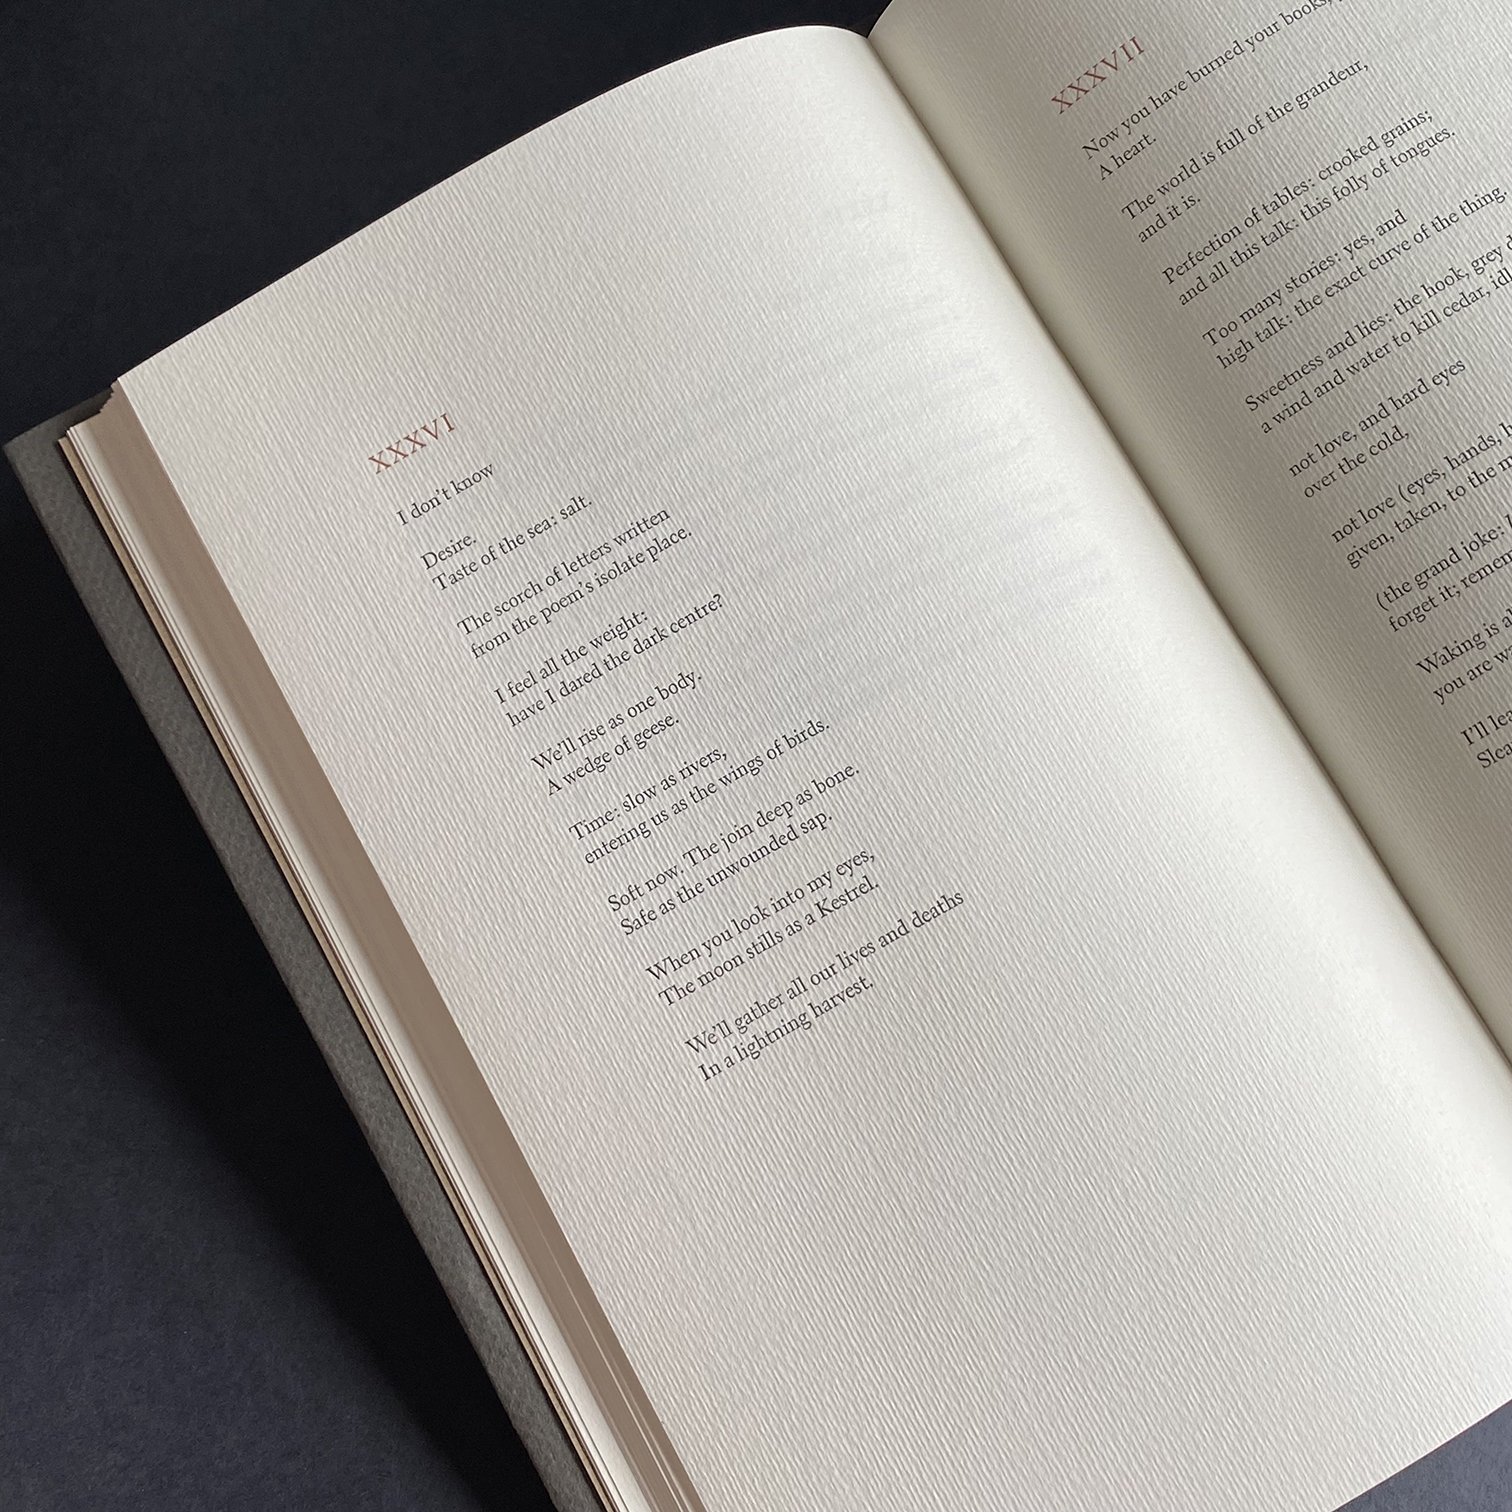 XXXVI
I don't know
Desire.
Taste of the sea: salt.
The scorch of letters written
from the poem's isolate place.
I feel all the weight:
have I dared the dark centre?
We'll rise as one body.
A wedge of geese.
Time: slow as rivers,
entering us as the wings of birds.
Soft now. The join deep as bone.
Safe as the unwounded sap.
When you look into my eyes,
The moon stills as a Kestrel.
We'll gather all our lives and deaths
In a lightning harvest.
XXXVII
Now you have burned your books,
A heart.
The world is full of the grandeur,
and it is.
Perfection of tables: crooked grains;
and all this talk: this folly of tongues.
Too many stories: yes, and
high talk: the exact curve of the thing.
Sweetness and lies: the hook, grey
a wind and water to kill cedar,
not love, and hard eyes
over the cold,
not love (eyes, hands,
given, taken, to the
(the grand joke:
forget it;
Waking is
you are
I'll